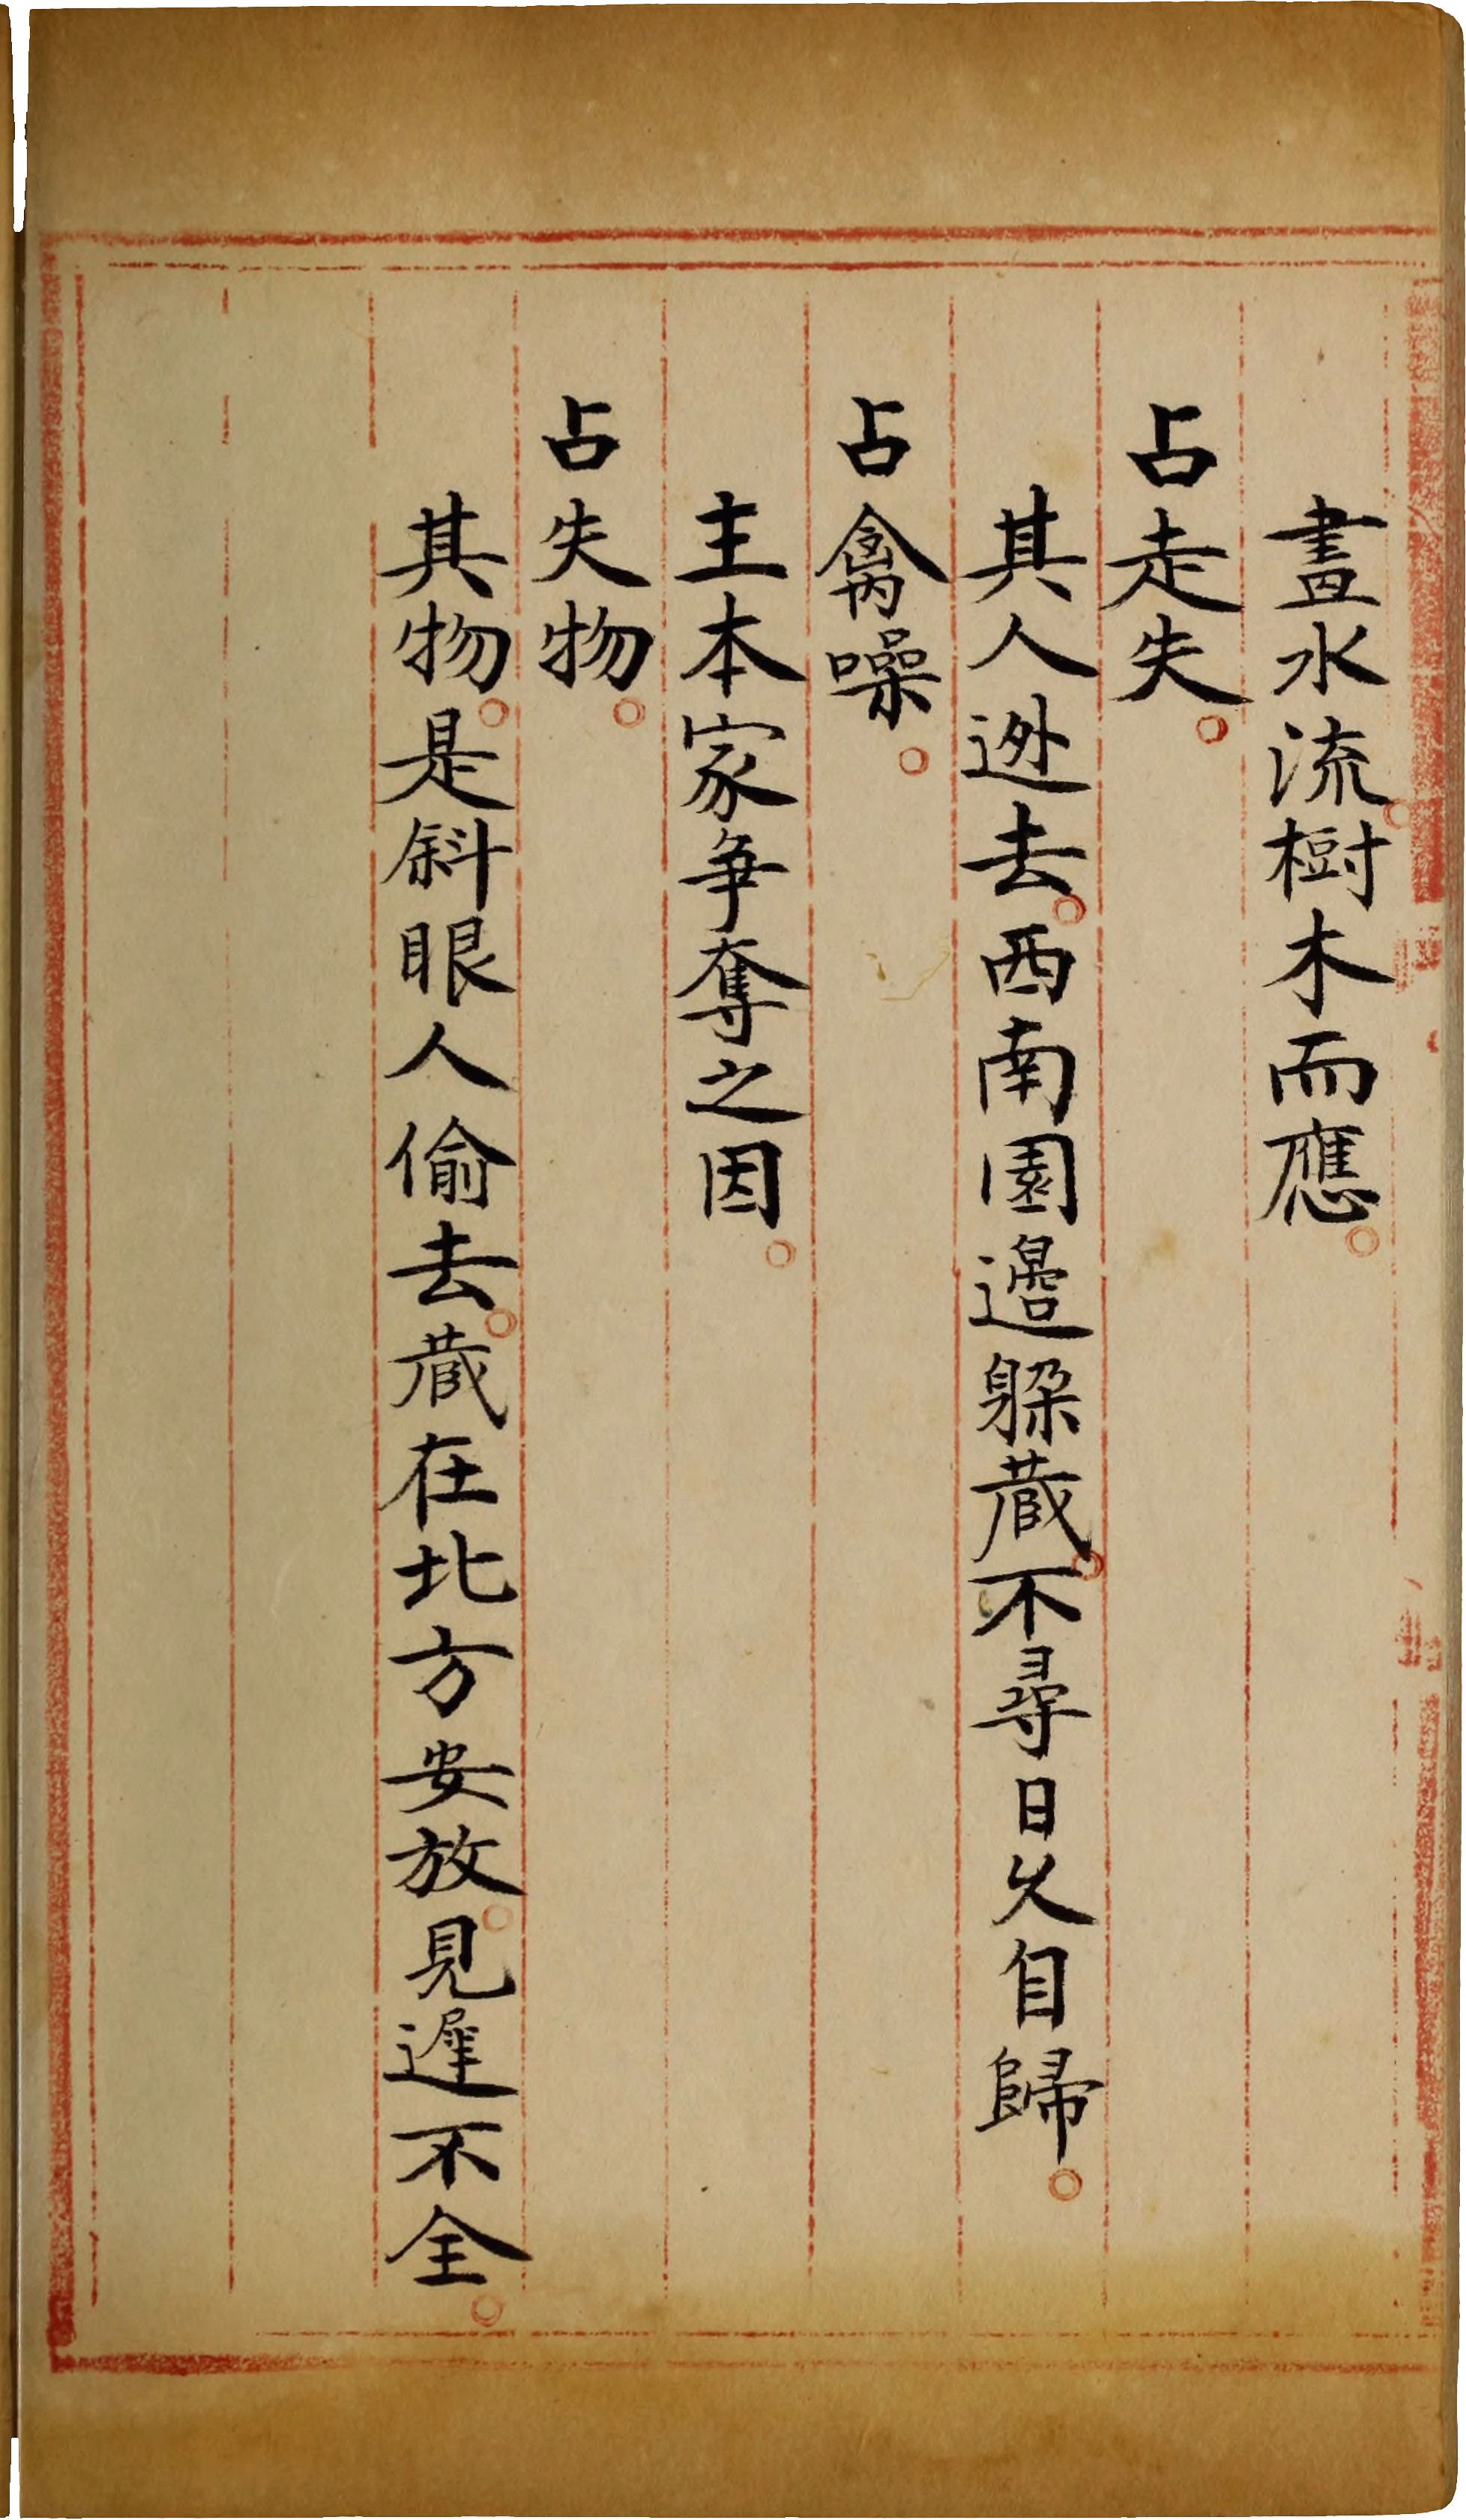 畫水流。樹木而應。
占走失。
其人迯去。西南園邉躲蔵。不尋日久自歸。
占禽噪。
主本家爭奪之因。
占失物。
其物。是斜眼人偷去。蔵在北方安放。見遲不全。